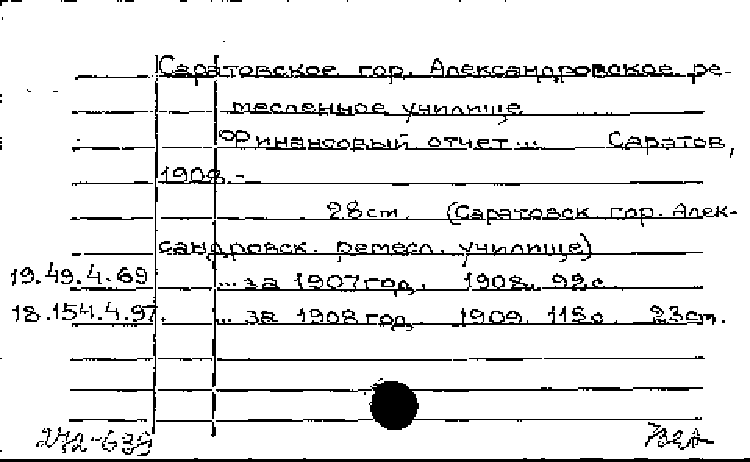 Саратовское гор. Александровское ре-
месленное училище
Финансовый отчет... Саратов,
1908.-
28см. (Саратовск. гор. Алек-
сандровск. ремесл. училище)
19.49.4.69 ... за 1907 год. 1908. 92с.
18.154.4.97. ... за 1908 год 1909. 115с. 23см.
272-639